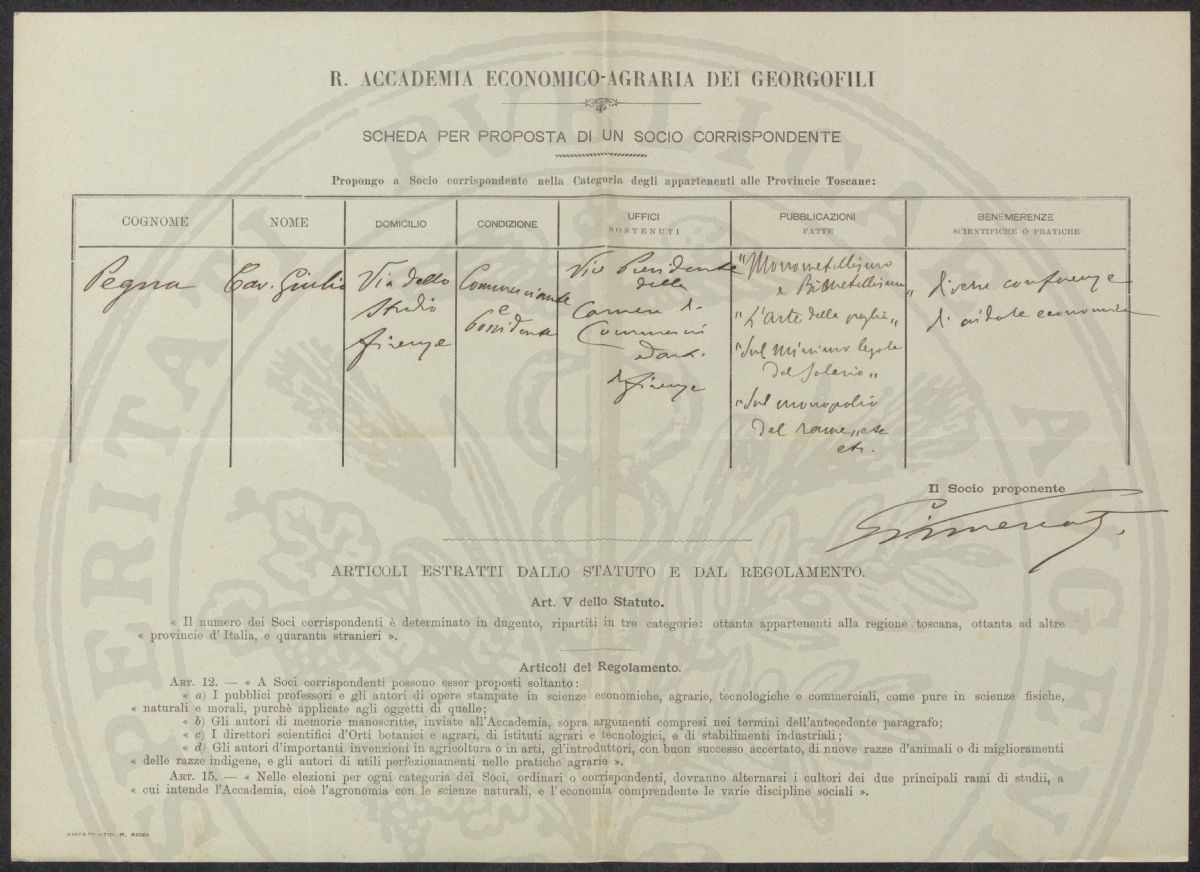 R. ACCADEMIA ECONOMICO-AGRARIA DEI GEORGOFILI
SCHEDA PER PROPOSTA DI UN SOCIO CORRISPONDENTE
Propongo a Socio corrispondente nella Categoria degli appartenenti alle Provincie Toscane:
COGNOME
NOME
DOMICILIO
CONDIZIONE
UFFICI
SOSTENUTI
PUBBLICAZIONI
FATTE
BENEMERENZE
SCIENTIFICHE O PRATICHE
Pegna
Cav. Giulio
Via dello
Studio
Firenze
Commerciante
e
Possidente
Vice Presidente
della
Camera di
Commercio
ed arti
di Firenze
"Monometallismo
e Bimetallismo"
"L'arte della paglia"
"Sul minimo legale
del Salario"
"Sul monopolio
del rame" etc
etc.
diverse conferenze
di indole economica
Il Socio proponente
ARTICOLI ESTRATTI DALLO STATUTO E DAL REGOLAMENTO.
Art. V dello Statuto.
« Il numero dei Soci corrispondenti è determinato in dugento, ripartiti in tre categorie: ottanta appartenenti alla regione toscana, ottanta ad altre
« provincie d'Italia, e quaranta stranieri ».
Articoli del Regolamento.
ART. 12. — « A Soci corrispondenti possono esser proposti soltanto:
« a) I pubblici professori e gli autori di opere stampate in scienze economiche, agrarie, tecnologiche e commerciali, come pure in scienze fisiche,
« naturali e morali, purchè applicate agli oggetti di quelle;
« b) Gli autori di memorie manoscritte, inviate all'Accademia, sopra argomenti compresi nei termini dell'antecedente paragrafo;
« c) I direttori scientifici d'Orti botanici e agrari, di istituti agrari e tecnologici, e di stabilimenti industriali;
« d) Gli autori d'importanti invenzioni in agricoltura o in arti, gl'introduttori, con buon successo accertato, di nuove razze d'animali o di miglioramenti
« delle razze indigene, e gli autori di utili perfezionamenti nelle pratiche agrarie ».
ART. 15. — « Nelle elezioni per ogni categoria dei Soci, ordinari o corrispondenti, dovranno alternarsi i cultori dei due principali rami di studii, a
« cui intende l'Accademia, cioè l'agronomia con le scienze naturali, e l'economia comprendente le varie discipline sociali ».
FIRENZE — TIP. M. RICCI